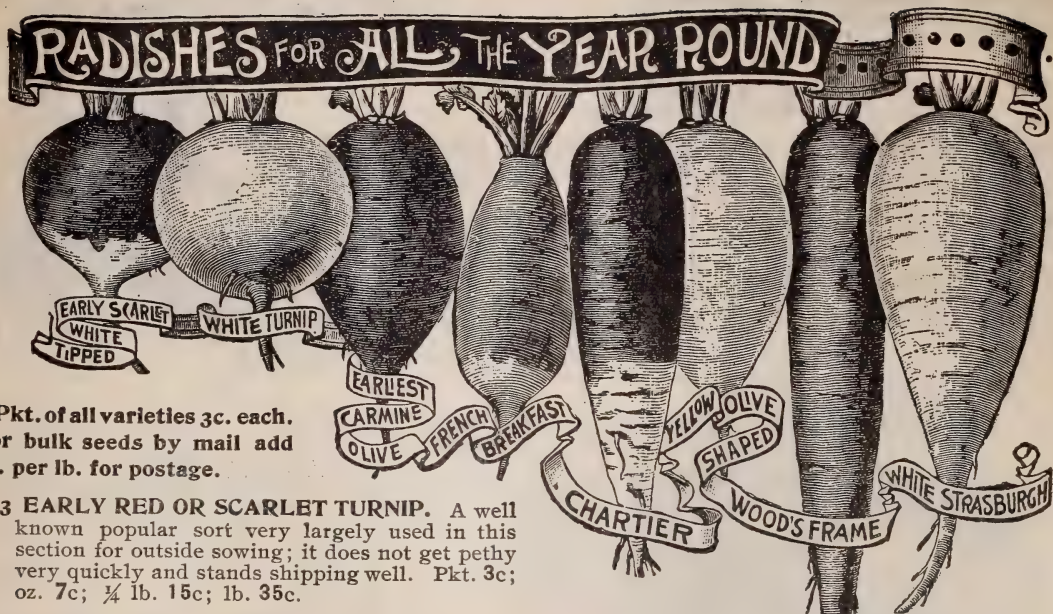 RADISHES FOR ALL THE YEAR ROUND
EARLY SCARLET
WHITE
TIPPED
WHITE TURNIP
EARLIEST
CARMINE
OLIVE
FRENCH
BREAKFAST
CHARTIER
YELLOW
OLIVE
SHAPED
WOOD'S FRAME
WHITE STRASBURGH
Pkt. of all varieties 3c. each.
or bulk seeds by mail add
. per lb. for postage.
3 EARLY RED OR SCARLET TURNIP. A well
known popular sort very largely used in this
section for outside sowing; it does not get pethy
very quickly and stands shipping well. Pkt. 3c;
oz. 7c; ¼ lb. 15c; lb. 35c.